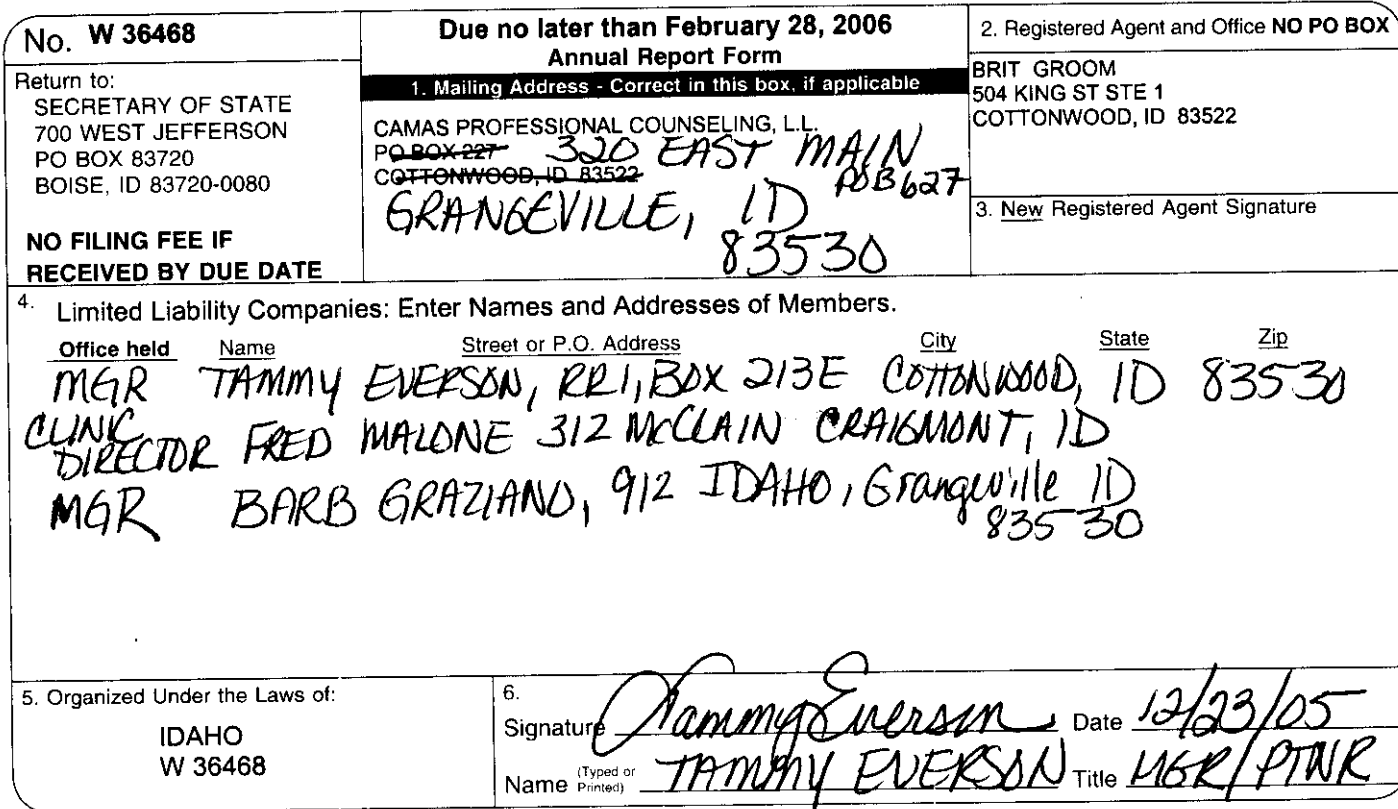 No. W 36468
Return to:
SECRETARY OF STATE
700 WEST JEFFERSON
PO BOX 83720
BOISE, ID 83720-0080
NO FILING FEE IF
RECEIVED BY DUE DATE
Due no later than February 28, 2006
Annual Report Form
1. Mailing Address - Correct in this box, if applicable
CAMAS PROFESSIONAL COUNSELING, L.L.
PO BOX 227 320 EAST MAIN
COTTONWOOD, ID 83522 POB 627
GRANGEVILLE, ID
83530
2. Registered Agent and Office NO PO BOX
BRIT GROOM
504 KING ST STE 1
COTTONWOOD, ID 83522
3. New Registered Agent Signature
4. Limited Liability Companies: Enter Names and Addresses of Members.
Office held Name Street or P.O. Address City State Zip
MGR TAMMY EVERSON, RR1, BOX 213E COTTONWOOD, ID 83530
CLINIC
DIRECTOR FRED MALONE 312 McCLAIN CRAIGMONT, ID
MGR BARB GRAZIANO, 912 IDAHO, Grangeville ID
83530
5. Organized Under the Laws of:
IDAHO
W 36468
6.
Signature Tammy Everson Date 12/23/05
Name (Typed or Printed) TAMMY EVERSON Title MGR/PTNR